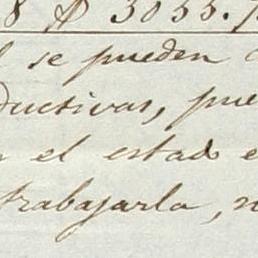 8 $ 3055.
se pueden
ductivas, pue
el estado e
trabajarla, n